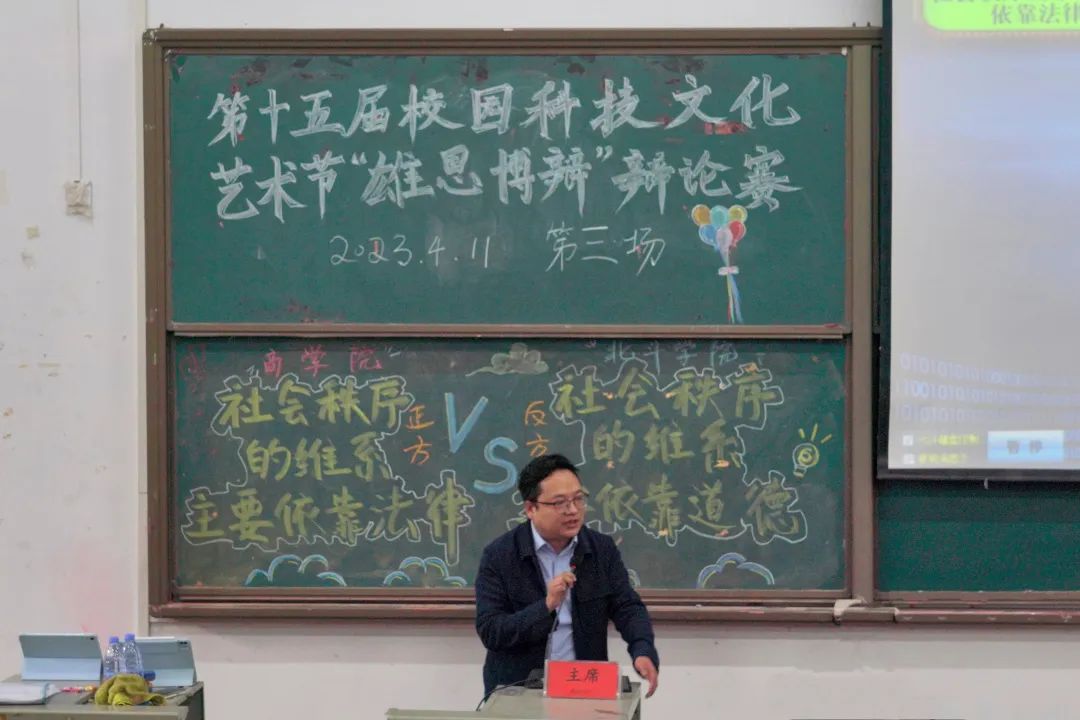 第十五届校园科技文化
艺术节“雄思博辩”辩论赛
2023.4.11 第三场
商学院
社会秩序
的维系
主要依靠法律
正方
VS
反方
北斗学院
社会秩序
的维系
依靠道德
主席
依靠法律